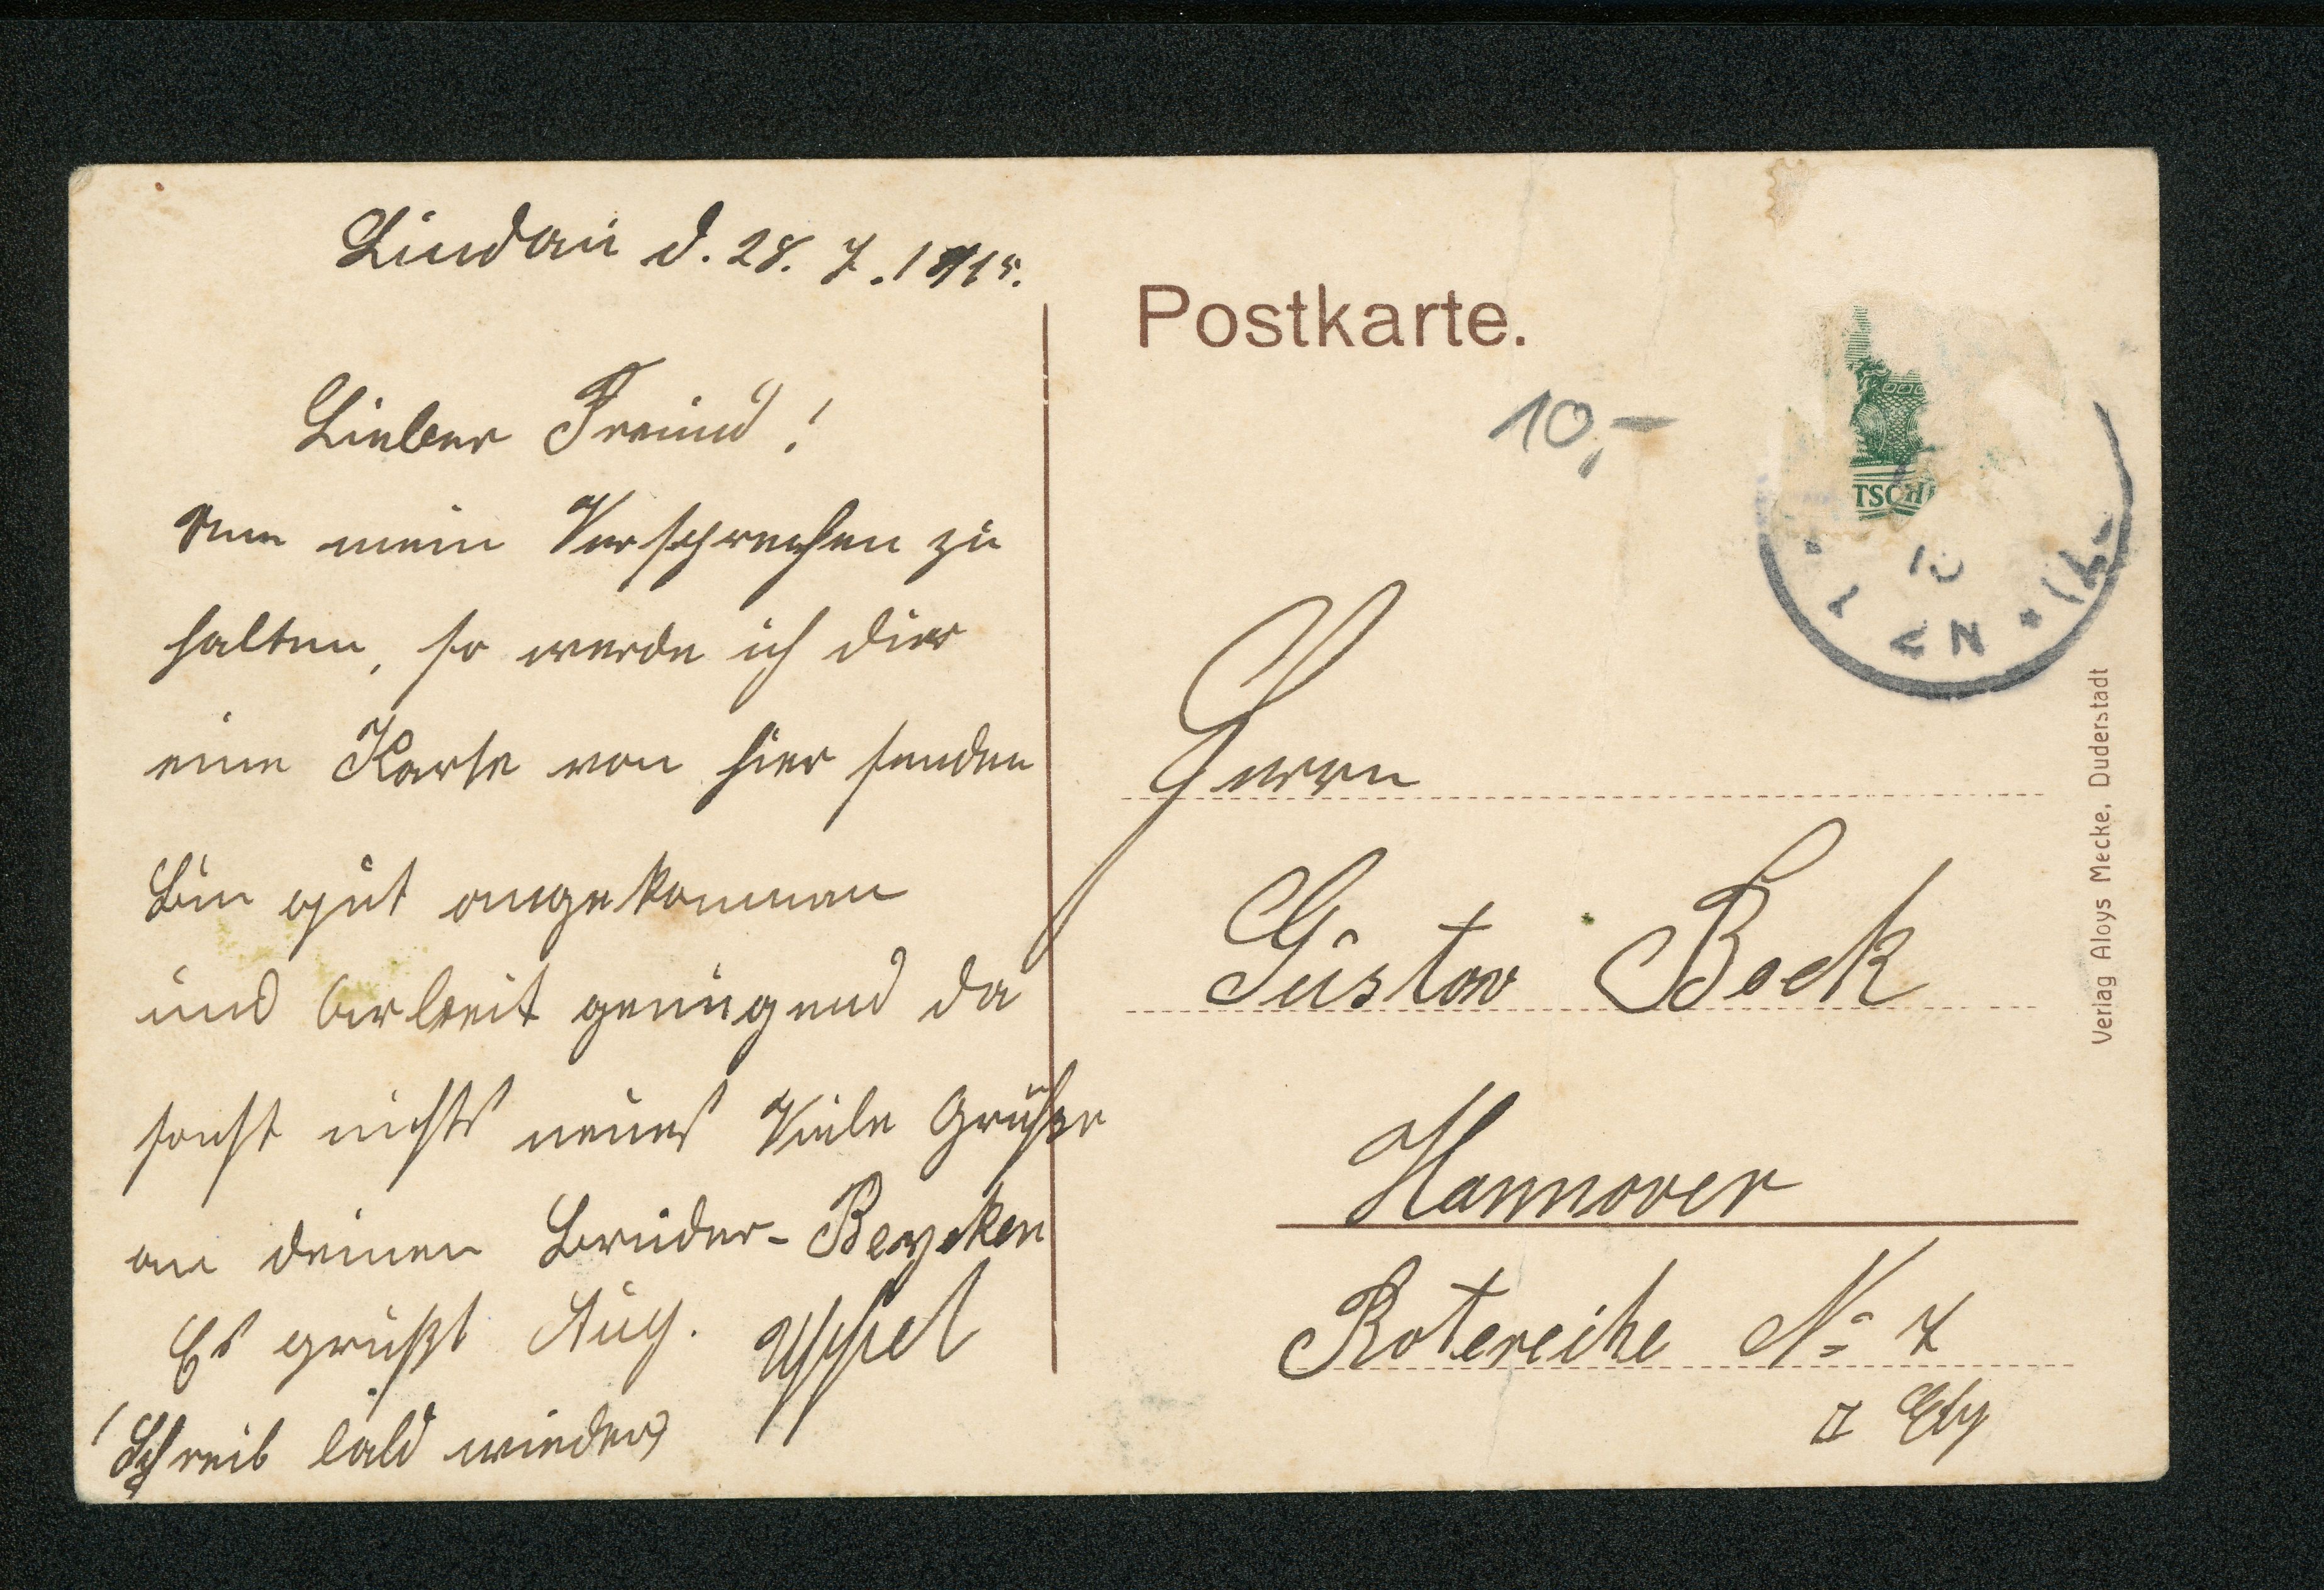 Lindau d. 28. 7. 1915.
Lieber Freund!
Um mein Versprechen zu
halten, so werde ich dier
eine Karte von hier senden
Bin gut angekommen
und Arbeit genügend da
sonst nichts neues Viele Grüße
an deinen Bruder-
Es grüßt Aug.
Schreib bald wieder
Postkarte.
10,-
TSCH
Herrn
Gustav Bock
Hannover
Rotereihe No 7
Verlag Aloys Mecke, Duderstadt